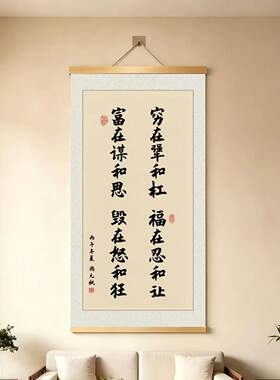 穷在犟和杠 福在忍和让
富在谋和思 毁在怒和狂
丙午年夏